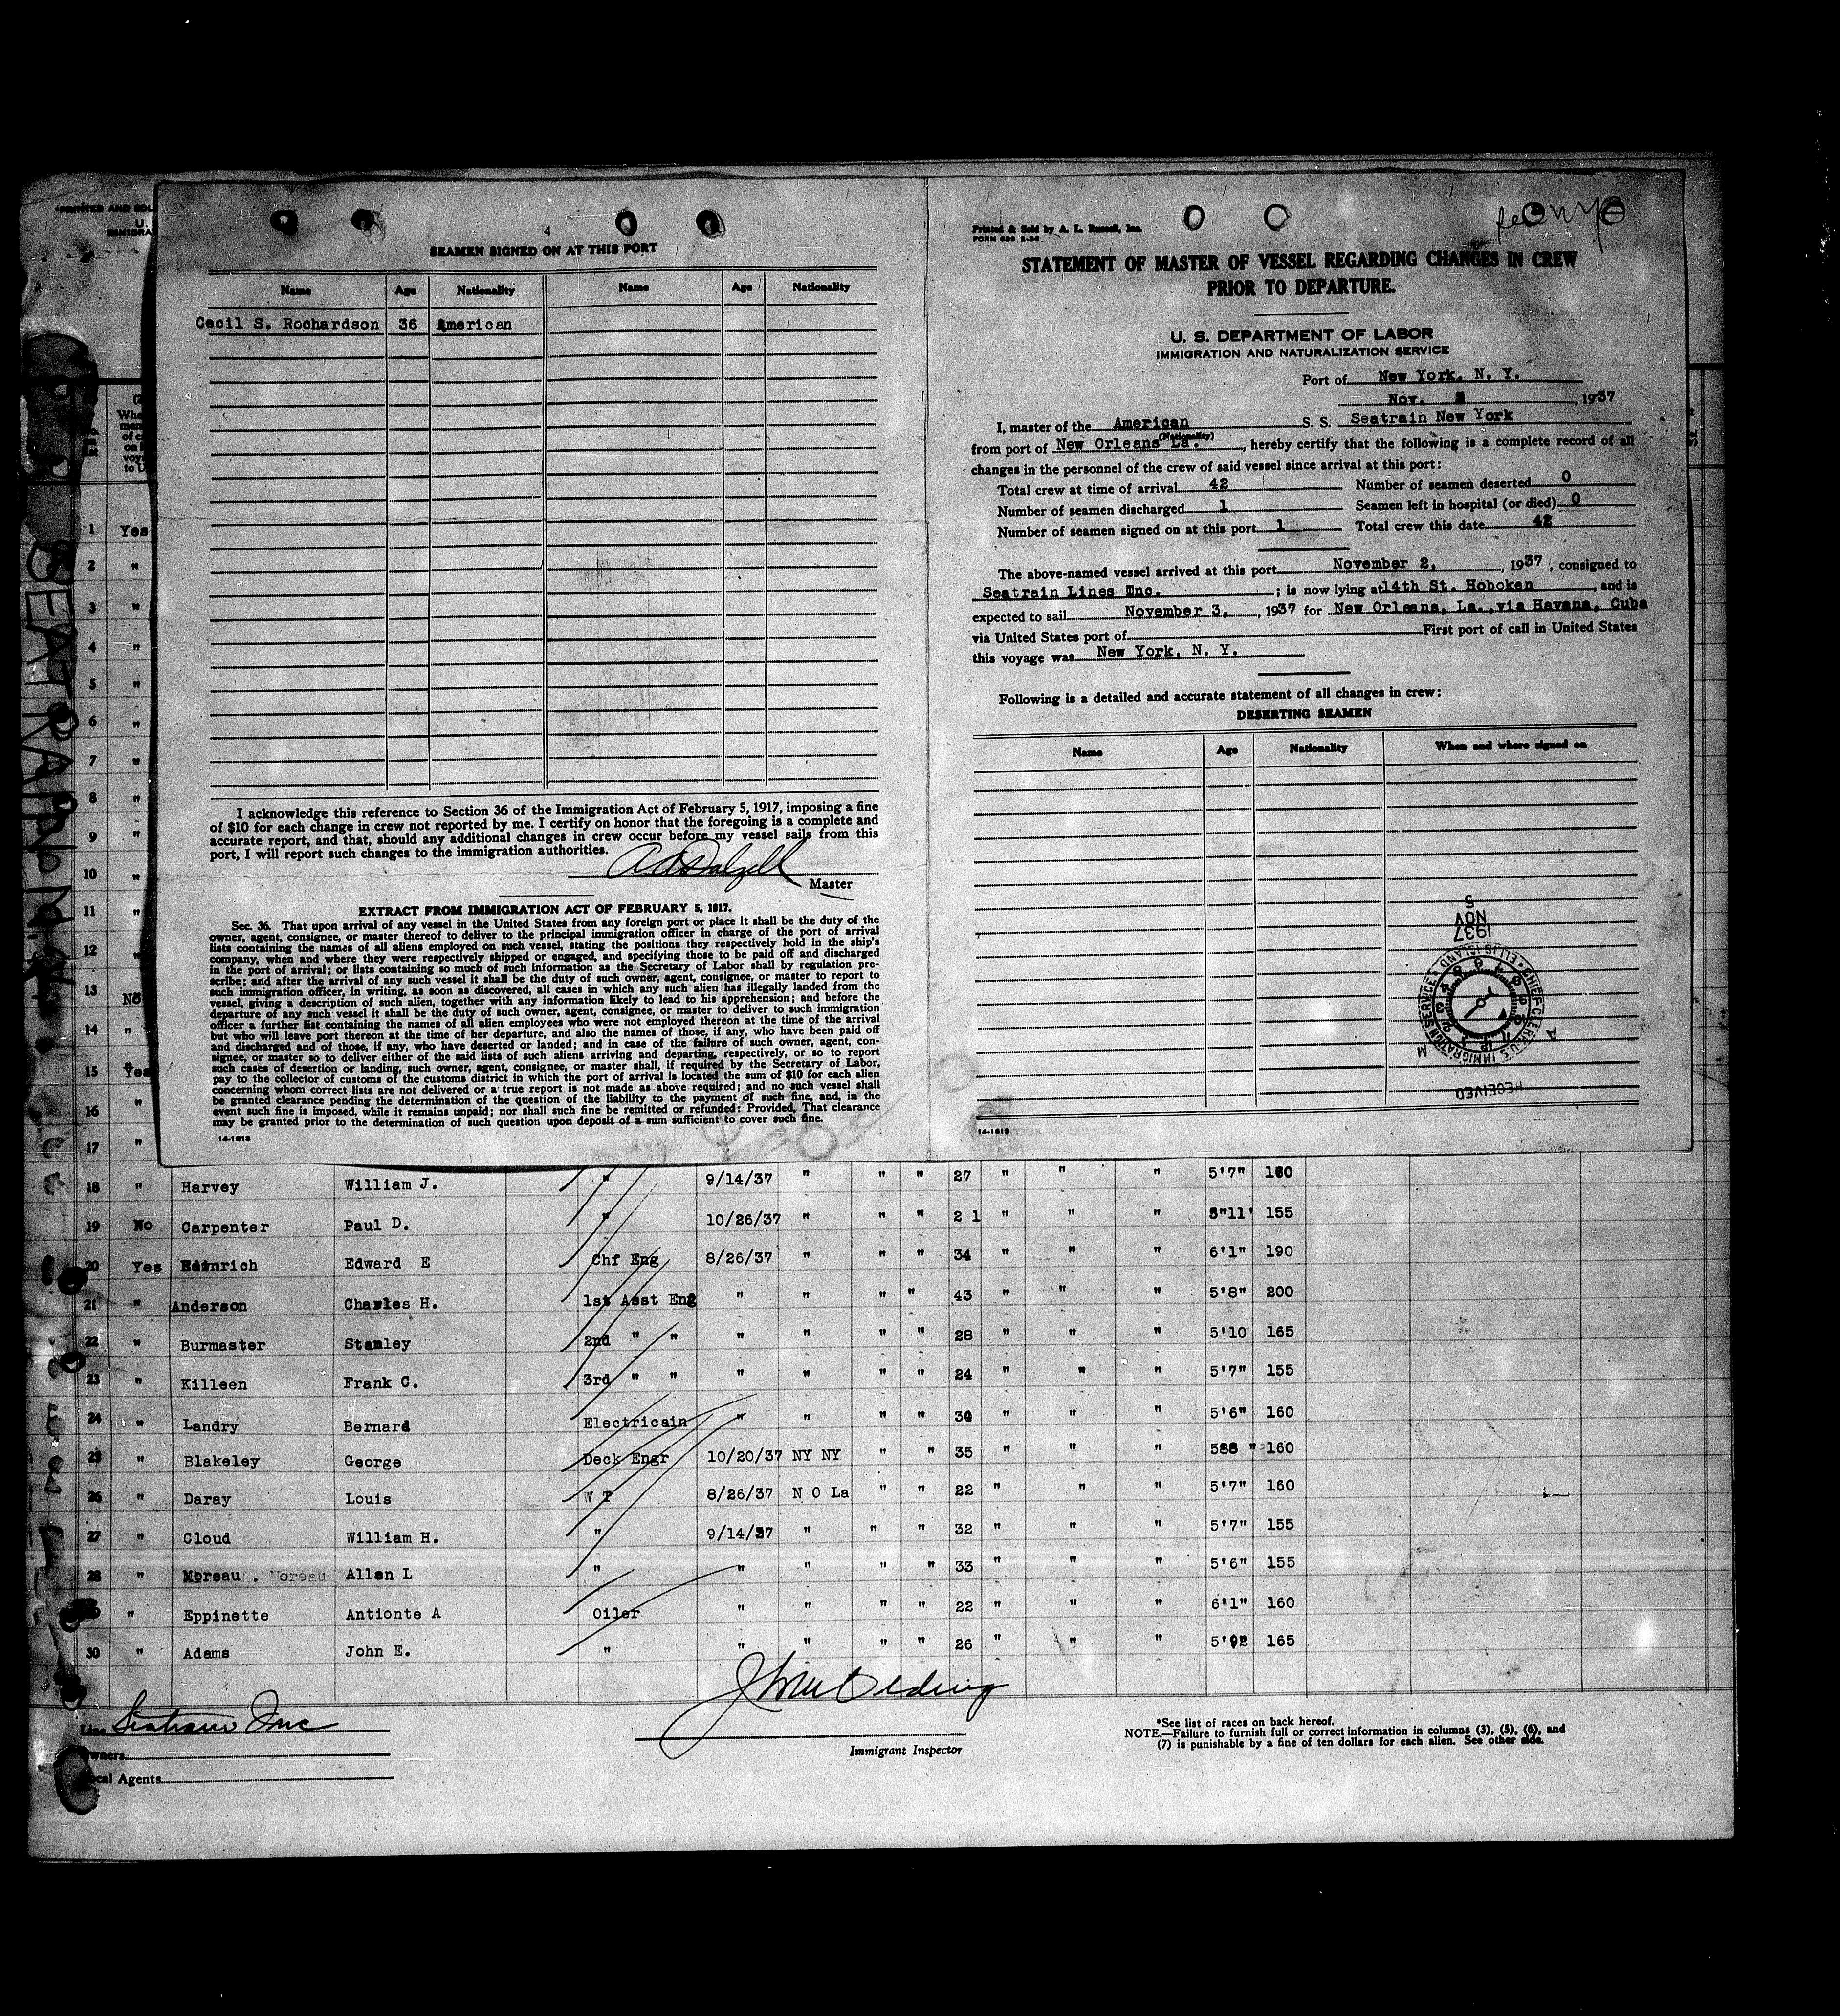 4
SEAMEN SIGNED ON AT THIS PORT
Name Age Nationality Name Age Nationality
Cecil S. Rochardson 36 American
I acknowledge this reference to Section 36 of the Immigration Act of February 5, 1917, imposing a fine
of $10 for each change in crew not reported by me. I certify on honor that the foregoing is a complete and
accurate report, and that, should any additional changes in crew occur before my vessel sails from this
port, I will report such changes to the immigration authorities.
Master
EXTRACT FROM IMMIGRATION ACT OF FEBRUARY 5, 1917.
Sec. 36. That upon arrival of any vessel in the United States from any foreign port or place it shall be the duty of the
owner, agent, consignee, or master thereof to deliver to the principal immigration officer in charge of the port of arrival
lists containing the names of all aliens employed on such vessel, stating the positions they respectively hold in the ship's
company, when and where they were respectively shipped or engaged, and specifying those to be paid off and discharged
in the port of arrival; or lists containing so much of such information as the Secretary of Labor shall by regulation pre-
scribe; and after the arrival of any such vessel it shall be the duty of such owner, agent, consignee, or master to report to
such immigration officer, in writing, as soon as discovered, all cases in which any such alien has illegally landed from the
vessel, giving a description of such alien, together with any information likely to lead to his apprehension; and before the
departure of any such vessel it shall be the duty of such owner, agent, consignee, or master to deliver to such immigration
officer a further list containing the names of all alien employees who were not employed thereon at the time of the arrival
but who will leave port thereon at the time of her departure, and also the names of those, if any, who have been paid off
and discharged and of those, if any, who have deserted or landed; and in case of the failure of such owner, agent, con-
signee, or master so to deliver either of the said lists of such aliens arriving and departing, respectively, or so to report
such cases of desertion or landing, such owner, agent, consignee, or master shall, if required by the Secretary of Labor,
pay to the collector of customs of the customs district in which the port of arrival is located the sum of $10 for each alien
concerning whom correct lists are not delivered or a true report is not made as above required; and no such vessel shall
be granted clearance pending the determination of the question of the liability to the payment of such fine, and, in the
event such fine is imposed, while it remains unpaid; nor shall such fine be remitted or refunded: Provided, That clearance
may be granted prior to the determination of such question upon deposit of a sum sufficient to cover such fine.
14-1619
Printed & Sold by A. L. Russell, Inc.
FORM 689 2-36
STATEMENT OF MASTER OF VESSEL REGARDING CHANGES IN CREW
PRIOR TO DEPARTURE.
U. S. DEPARTMENT OF LABOR
IMMIGRATION AND NATURALIZATION SERVICE
Port of New York, N. Y.
Nov. , 1937
I, master of the American S. S. Seatrain New York
(Nationality)
from port of New Orleans La. , hereby certify that the following is a complete record of all
changes in the personnel of the crew of said vessel since arrival at this port:
Total crew at time of arrival 42 Number of seamen deserted 0
Number of seamen discharged 1 Seamen left in hospital (or died) 0
Number of seamen signed on at this port 1 Total crew this date 42
The above-named vessel arrived at this port November 2, , 1937 , consigned to
Seatrain Lines Inc. ; is now lying at 14th St. Hoboken , and is
expected to sail November 3, , 1937 for New Orleans, La., via Havana, Cuba
via United States port of First port of call in United States
this voyage was New York, N. Y.
Following is a detailed and accurate statement of all changes in crew:
DESERTING SEAMEN
Name Age Nationality When and where signed on
1937
NOV
5
RECEIVED
14-1619
1 Yes
2 "
3 "
4 "
5 "
6 "
7 "
8 "
9 "
10 "
11 "
12 "
13 No
14 "
15 Yes
16 "
17 "
18 " Harvey William J. " 9/14/37 " " " 27 " " " 5'7" 160
19 No Carpenter Paul D. " 10/26/37 " " " 2 1 " " " 5"11' 155
20 Yes Heinrich Edward E Chf Eng 8/26/37 " " " 34 " " " 6'1" 190
21 " Anderson Charles H. 1st Asst Eng " " " " 43 " " " 5'8" 200
22 " Burmaster Stanley 2nd " " " " " " 28 " " " 5'10 165
23 " Killeen Frank C. 3rd " " " " " " 24 " " " 5'7" 155
24 " Landry Bernard Electricain " " " " 30 " " " 5'6" 160
25 " Blakeley George Deck Engr 10/20/37 NY NY " " 35 " " " 588 " 160
26 " Daray Louis W T 8/26/37 N O La " " 22 " " " 5'7" 160
27 " Cloud William H. " 9/14/37 " " " 32 " " " 5'7" 155
28 " Moreau . Moreau Allen L " " " " " 33 " " " 5'6" 155
" Eppinette Antionte A Oiler " " " " 22 " " " 6'1" 160
30 " Adams John E. " " " " " 26 " " " 165
Line Seatrain Inc
Owners
Local Agents
Immigrant Inspector
*See list of races on back hereof.
NOTE.—Failure to furnish full or correct information in columns (3), (5), (6), and
(7) is punishable by a fine of ten dollars for each alien. See other side.